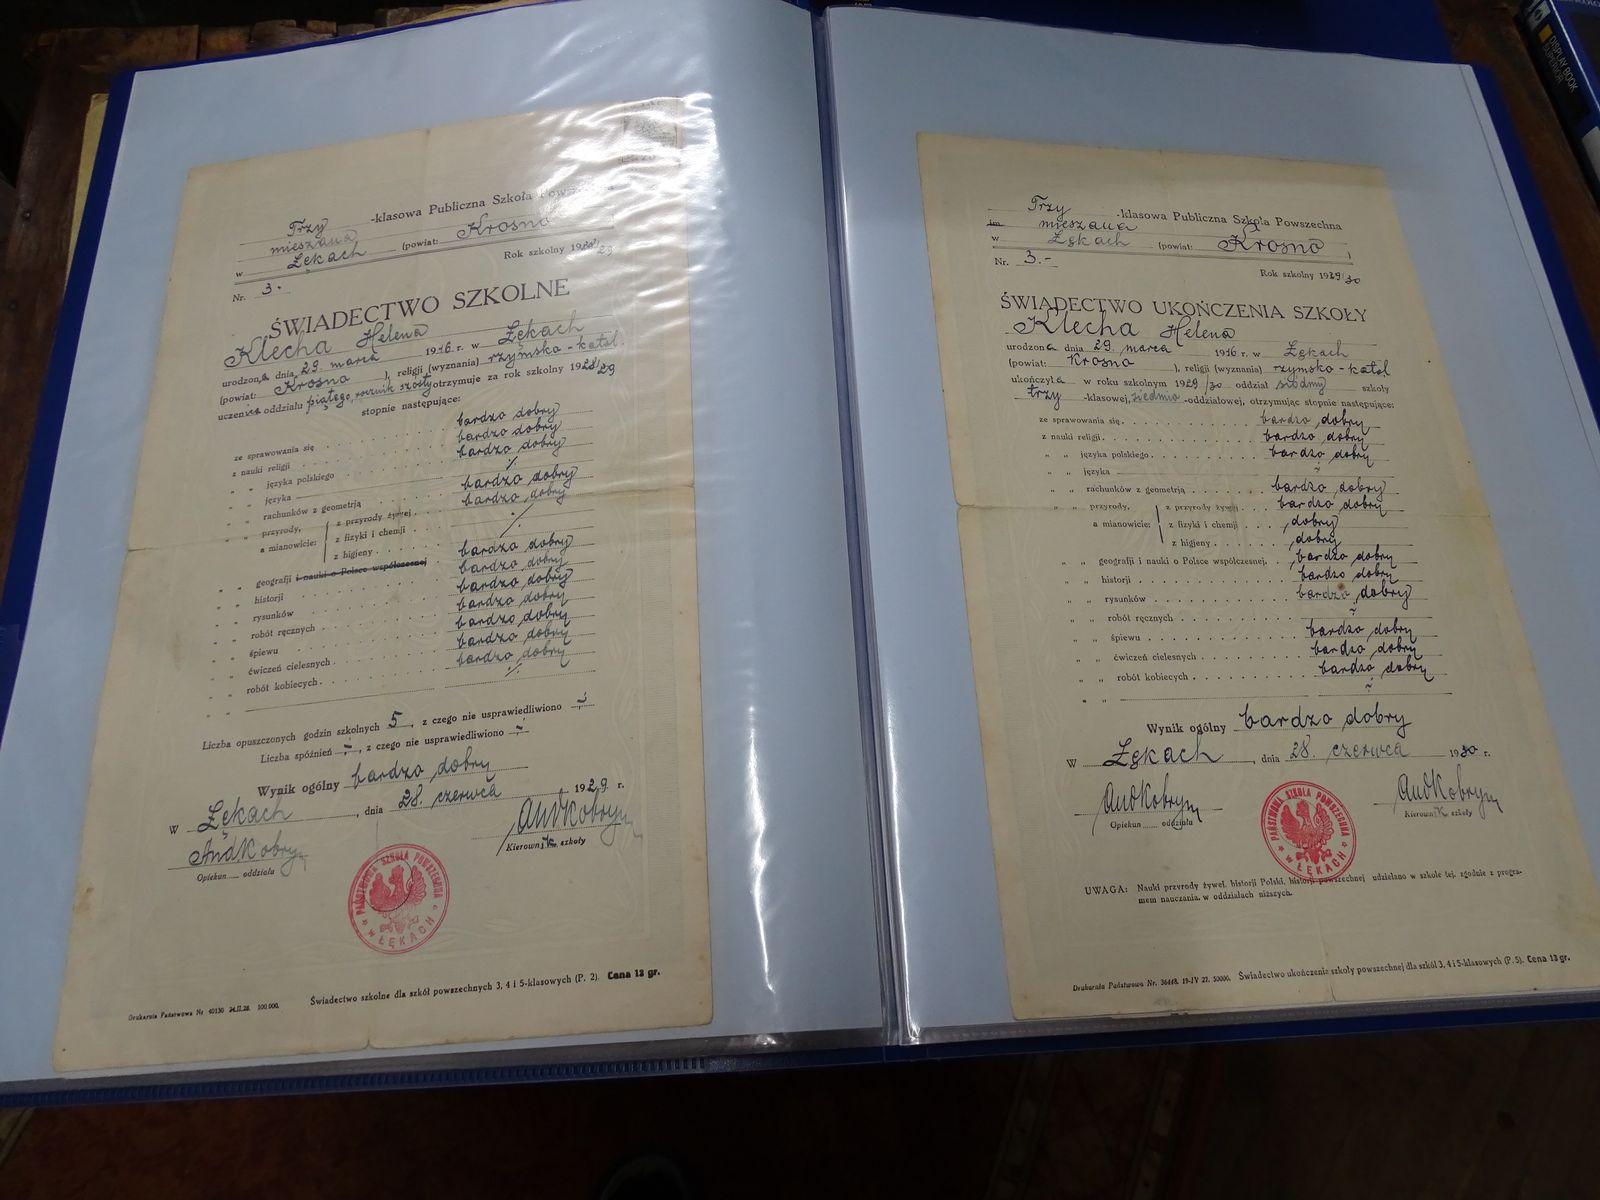 Trzy -klasowa Publiczna Szkoła
mieszana
w Łękach (powiat: Krosno
Nr. 3. Rok szkolny 1928/29
ŚWIADECTWO SZKOLNE
Klecha Helena
urodzona dnia 29. marca 1916 r. w Łękach
(powiat: Krosno ), religii (wyznania) rzymsko-katol.
uczenica oddziału piątego, rocznik szósty otrzymuje za rok szkolny 1928/29
stopnie następujące:
ze sprawowania się bardzo dobry
z nauki religii bardzo dobry
" " języka polskiego bardzo dobry
" " języka
" " rachunków z geometrją bardzo dobry
" " przyrody, z przyrody żywej bardzo dobry
a mianowicie: z fizyki i chemji
z higjeny
" " geografji i nauki o Polsce współczesnej bardzo dobry
" " historji bardzo dobry
" " rysunków bardzo dobry
" " robót ręcznych bardzo dobry
" " śpiewu bardzo dobry
" " ćwiczeń cielesnych bardzo dobry
" " robót kobiecych bardzo dobry
Liczba opuszczonych godzin szkolnych 5, z czego nie usprawiedliwiono
Liczba spóźnień , z czego nie usprawiedliwiono
Wynik ogólny bardzo dobry
W Łękach, dnia 28. czerwca 1929 r.
AndKobryn AndKobryn
Opiekun oddziału Kierownik szkoły
PAŃSTWOWA SZKOŁA POWSZECHNA
w ŁĘKACH
Drukarnia Państwowa Nr 40130 24.II.28. 100.000. Świadectwo szkolne dla szkół powszechnych 3, 4 i 5-klasowych (P. 2). Cena 13 gr.
Trzy -klasowa Publiczna Szkoła Powszechna
im mieszana
w Łękach (powiat: Krosno )
Nr. 3.-
Rok szkolny 1929/30
ŚWIADECTWO UKOŃCZENIA SZKOŁY
Klecha Helena
urodzona dnia 29. marca 1916 r. w Łękach
(powiat: Krosno ), religii (wyznania) rzymsko-katol
ukończyła w roku szkolnym 1929/30 oddział siódmy szkoły
trzy -klasowej, siedmio -oddziałowej, otrzymując stopnie następujące:
ze sprawowania się bardzo dobry
z nauki religji bardzo dobry
" " języka polskiego bardzo dobry
" " języka
" " rachunków z geometrją bardzo dobry
" " przyrody, z przyrody żywej bardzo dobry
a mianowicie: z fizyki i chemji dobry
z higjeny dobry
" " geografji i nauki o Polsce współczesnej bardzo dobry
" " historji bardzo dobry
" " rysunków bardzo dobry
" " robót ręcznych
" " śpiewu bardzo dobry
" " ćwiczeń cielesnych bardzo dobry
" " robót kobiecych bardzo dobry
Wynik ogólny bardzo dobry
W Łękach, dnia 28. czerwca 1930 r.
AndKobryn AndKobryn
Opiekun oddziału Kierownik szkoły
PAŃSTWOWA SZKOŁA POWSZECHNA
w ŁĘKACH
UWAGA: Nauki przyrody żywej, historji Polski, historji powszechnej udzielano w szkole tej, zgodnie z progra-
mem nauczania, w oddziałach niższych.
Drukarnia Państwowa Nr. 36468. 19-IV 27. 50000. Świadectwo ukończenia szkoły powszechnej dla szkół 3, 4 i 5-klasowych (P. 5). Cena 13 gr.
DISPLAY BOOK
SUPERIOR